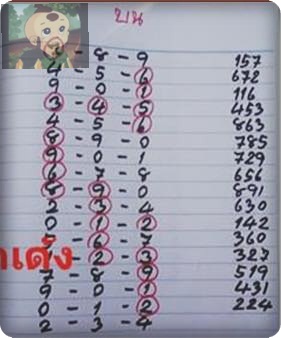 บน
- 8 - 9 157
4 - 5 - 6 672
9 - 0 - 1 116
3 - 4 - 5 453
4 - 5 - 6 863
8 - 9 - 0 785
9 - 0 - 1 729
6 - 7 - 8 656
8 - 9 - 0 891
2 - 3 - 4 630
0 - 1 - 2 142
5 - 6 - 7 360
เด้ง - 2 - 3 327
7 - 8 - 9 519
9 - 0 - 1 431
0 - 1 - 2 224
2 - 3 - 4